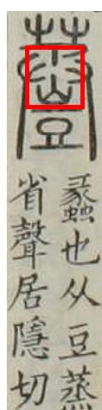 𧯷
蠡也从豆蒸
省聲居隱切